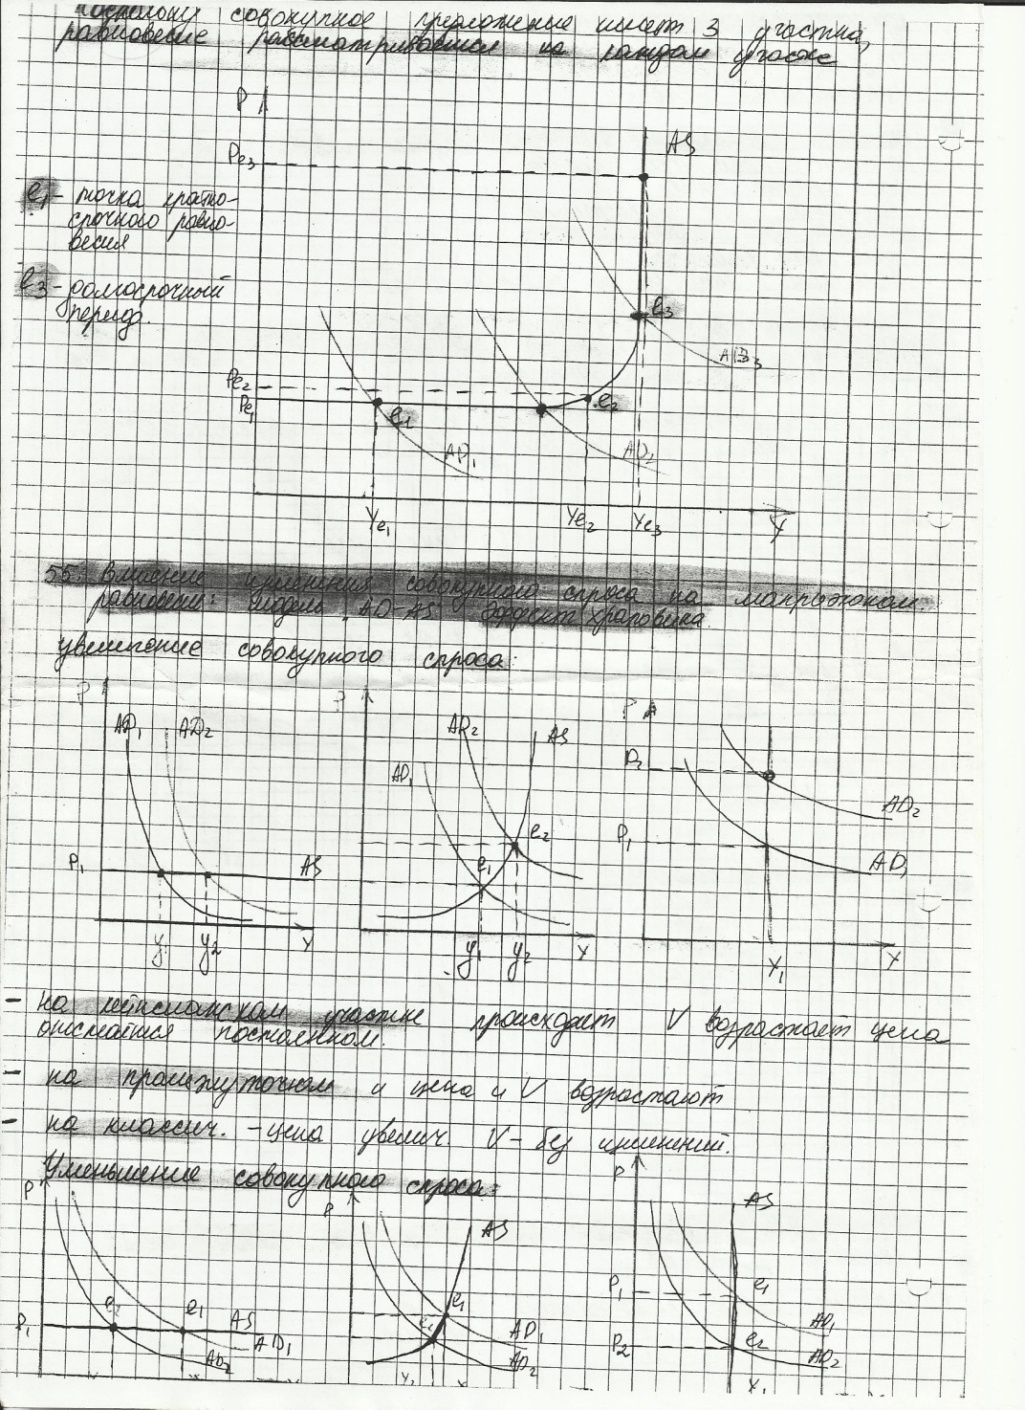 Поскольку совокупное предложение имеет 3 участка,
равновесие рассматривается на каждом участке
P
AS
Pe3
e1 - точка кратко-
срочного равно-
весия
e3 - долгосрочный
период.
e3
AD3
Pe2
Pe1
e2
e1
AD1
AD2
Ye1
Ye2
Ye3
Y
55. Влияние изменения совокупного спроса на макроэконом.
равновесие: модель AD-AS эффект храповика.
увеличение совокупного спроса:
P
AD1
AD2
P1
AS
y1
y2
Y
P
AD2
AS
AD1
e2
e1
y1
y2
Y
P
P2
AD2
P1
AD1
Y1
Y
- на кейнсианском участке происходит V возрастает цена
остается постоянной.
- на промежуточном и цена и V возрастают
- на классич. - цена увелич. V - без изменений.
Уменьшение совокупного спроса:
P
e2
e1
P1
AS
AD1
AD2
P
AS
e1
AD1
AD2
Y1
P
AS
P1
e1
AD1
P2
e2
AD2
Y1